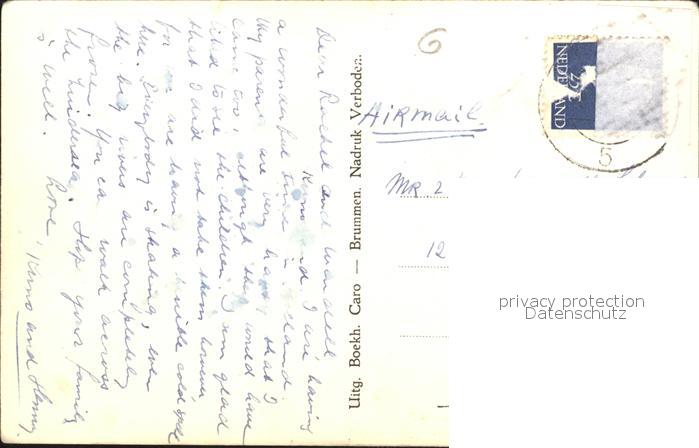 Dear Rachel and Wendell
Kuno and I are having
a wonderful time in
My parents are very happy that I
came too, although they would have
liked to see the children. I am glad
that I did not take them however
for we are having a terrible cold spell
here. Everybody is skating, even
the big rivers are completely
frozen. You can walk across
the Zuidersea. Hop your family
is well.
Love,
Kuno and Henny.
Uitg. Boekh. Caro — Brummen. Nadruk Verboden.
6
AIRMAIL
MR. 2
12
NEDERLAND
5
privacy protection
Datenschutz